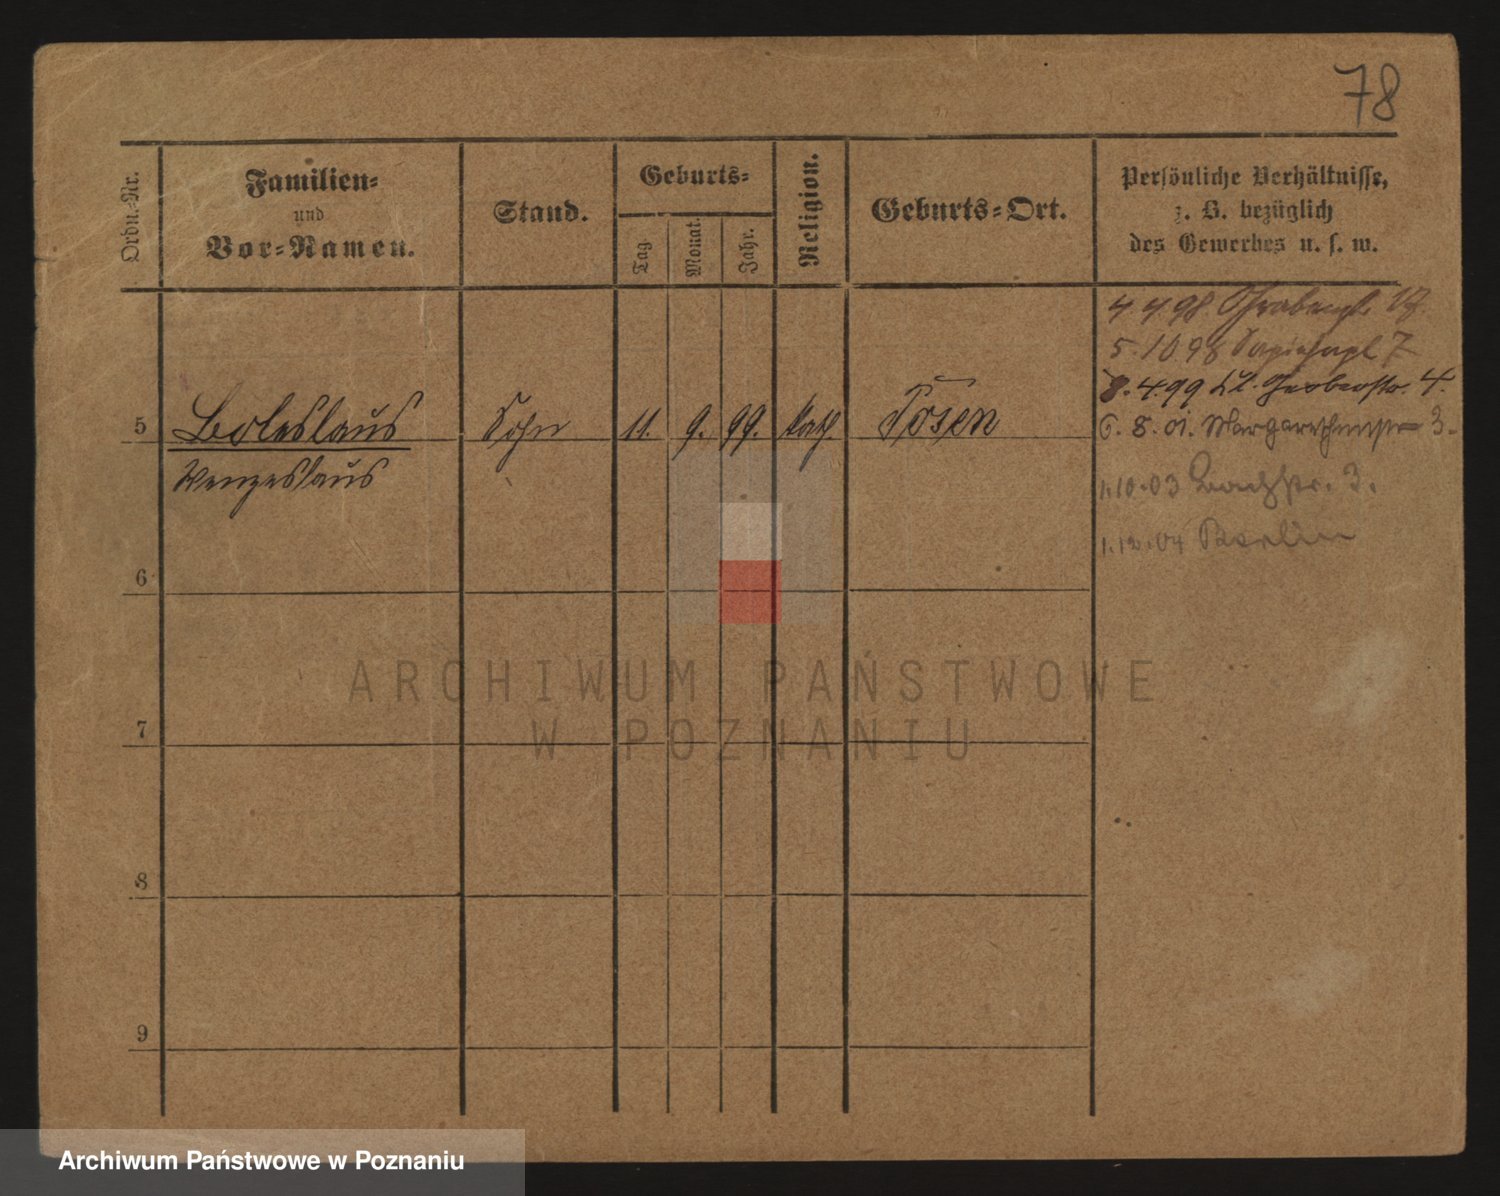 78
Ordn.-Nr.
Familien-
und
Vor-Namen.
Stand.
Geburts-
Tag.
Monat.
Jahr.
Religion.
Geburts-Ort.
Persönliche Verhältnisse,
z. B. bezüglich
des Gewerbes u. s. w.
4 4 98 Grabenpl.
5. 10 98 Sapiehapl 7
8. 4. 99 Gerberstr. 4.
6. 8. 01. Margarethenstr 3.
1. 10. 03 Bachstr. 3.
1. 12. 04 Berlin
5 Boleslaus Sohn 11. 9. 99. kath. Posen
Wenzeslaus
6
7
8
9
ARCHIWUM PAŃSTWOWE
W POZNANIU
Archiwum Państwowe w Poznaniu